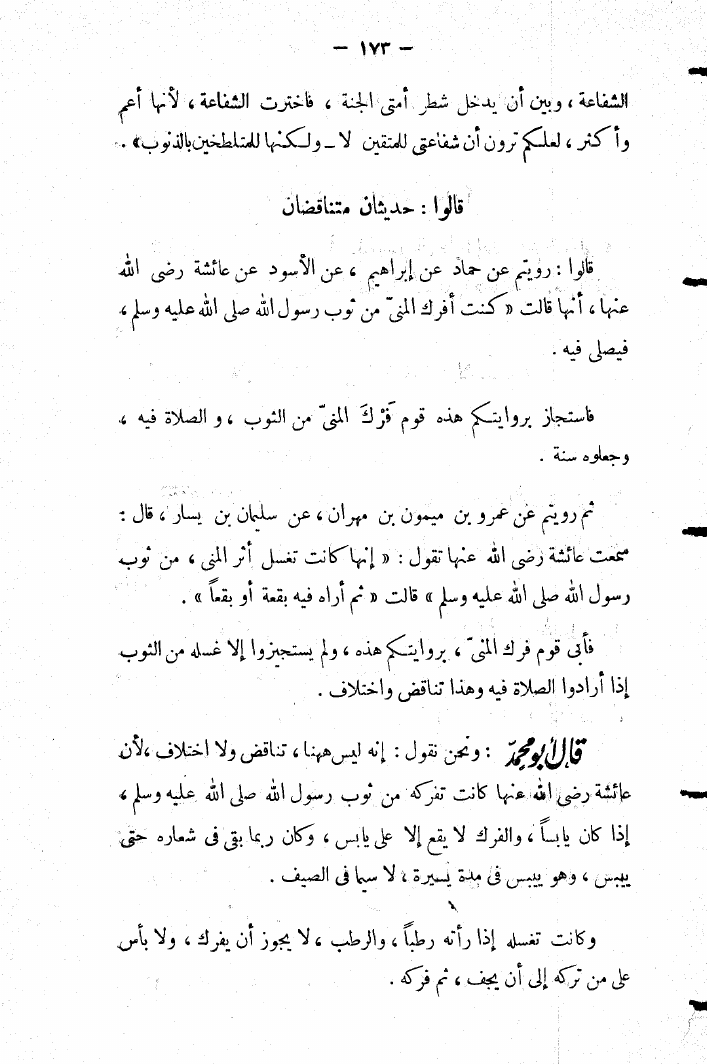 — ١٧٣ —
الشفاعة ، وبين أن يدخل شطر أمتى الجنة ، فاخترت الشفاعة ، لأنها أعم
وأكثر ، لعلكم ترون أن شفاعتى للمتقين لا ـ ولكنها للمتلطخين بالذنوب» .
قالوا : حديثان متناقضان
قالوا : رويتم عن حماد عن إبراهيم ، عن الأسود عن عائشة رضى الله
عنها ، أنها قالت « كنت أفرك المنىّ من ثوب رسول الله صلى الله عليه وسلم ،
فيصلى فيه .
فاستجاز بروايتكم هذه قوم فَرْكَ المنىّ من الثوب ، و الصلاة فيه ،
وجعلوه سنة .
ثم رويتم عن عمرو بن ميمون بن مهران ، عن سليمان بن يسار ، قال :
سمعت عائشة رضى الله عنها تقول : « إنها كانت تغسل أثر المنى ، من ثوب
رسول الله صلى الله عليه وسلم » قالت « ثم أراه فيه بقعة أو بقعاً » .
فأبى قوم فرك المنىّ ، بروايتكم هذه ، ولم يستجيزوا إلا غسله من الثوب
إذا أرادوا الصلاة فيه وهذا تناقض واختلاف .
قال أبو محمد : ونحن نقول : إنه ليس ههنا ، تناقض ولا اختلاف ، لأن
عائشة رضى الله عنها كانت تفركه من ثوب رسول الله صلى الله عليه وسلم ،
إذا كان يابساً ، والفرك لا يقع إلا على يابس ، وكان ربما بقى فى شعاره حتى
ييبس ، وهو ييبس فى مدة يسيرة ، لا سيما فى الصيف .
وكانت تغسله إذا رأته رطباً ، والرطب ، لا يجوز أن يفرك ، ولا بأس
على من تركه إلى أن يجف ، ثم فركه .